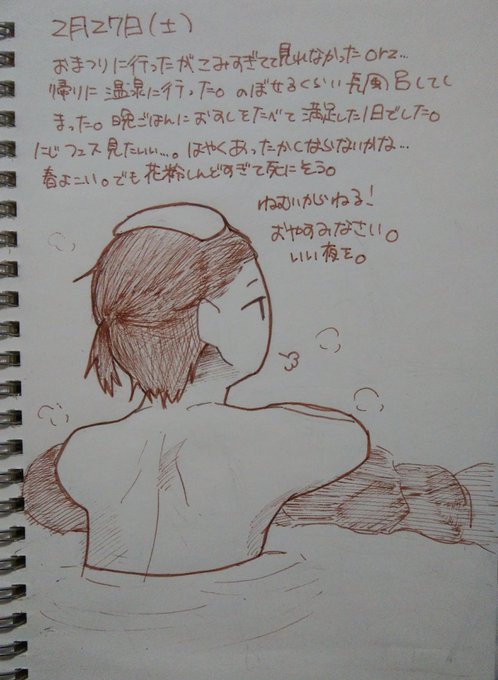 2月27日(土)
おまつりに行ったがこみすぎてて見れなかったorz...
帰りに温泉に行った。のぼせるくらい長風呂してし
まった。晩ごはんにおすしをたべて満足した1日でした。
にじフェス見たいい...。はやくあったかくならないかな...
春よこい。でも花粉しんどすぎて死にそう。
ねむいからねる!
おやすみなさい。
いい夜を。